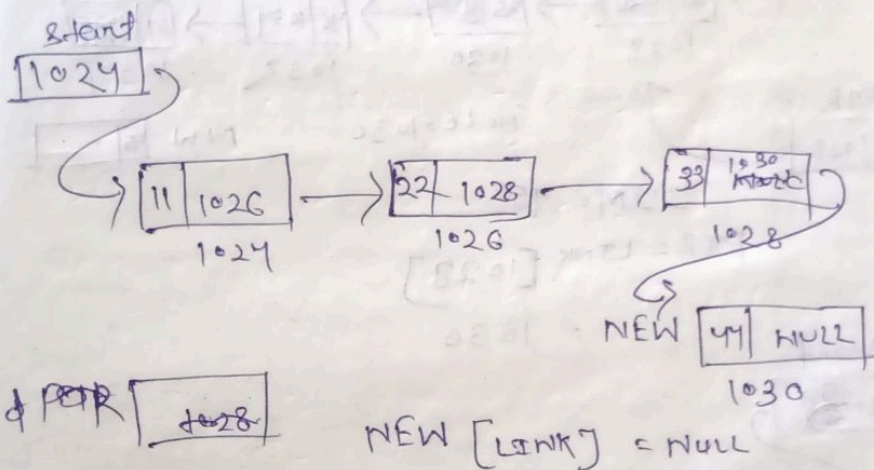 Start
1024
11 1026
22 1028
33 1030
1024
1026
1028
NEW 44 NULL
1030
PTR 1028
NEW [LINK] = NULL